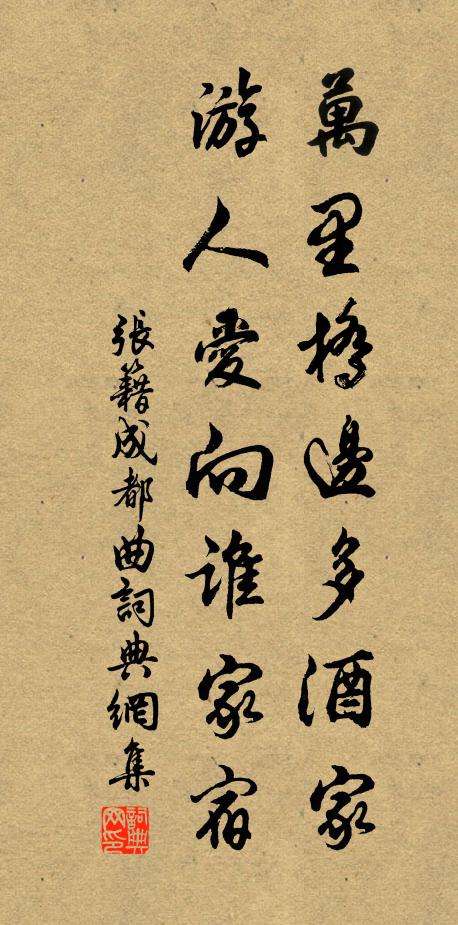 萬里橋邊多酒家
游人愛向誰家宿
張籍成都曲詞典網集
詞典
网印